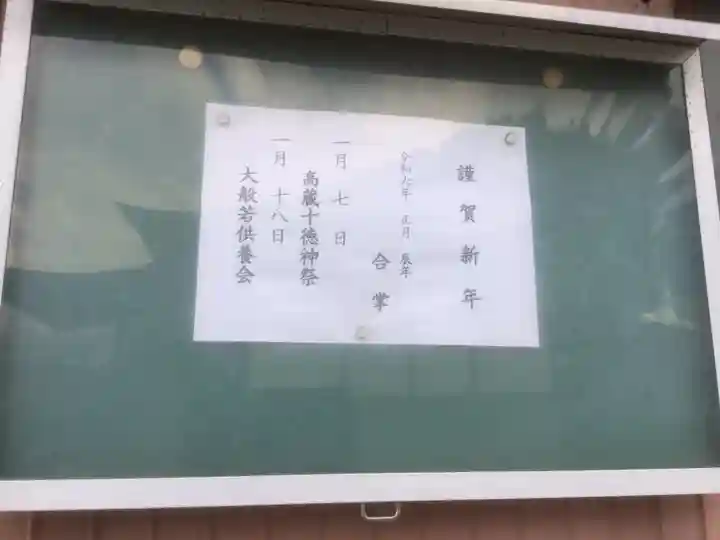 謹賀新年
令和六年 正月 辰年
合掌
一月 七日
高蔵十徳神祭
一月 十八日
大般若供養会